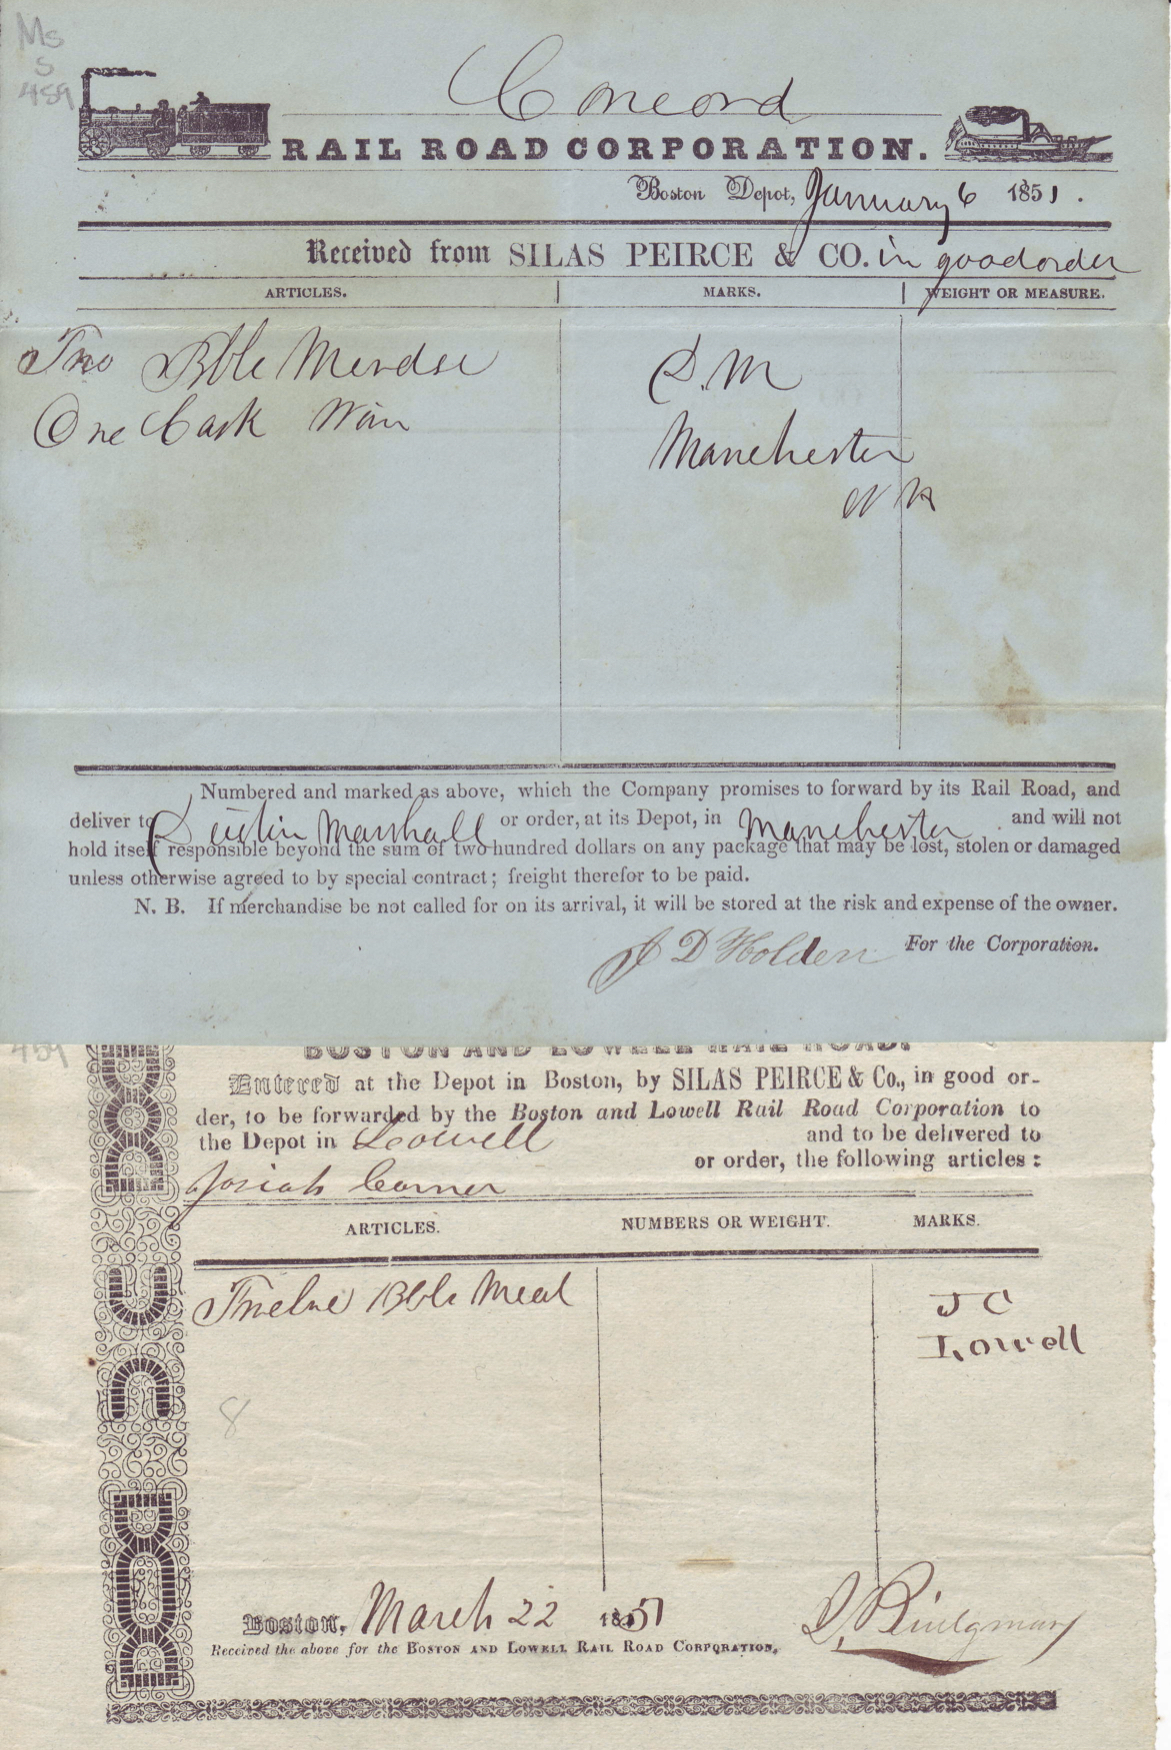 Ms
S
459
Concord
RAIL ROAD CORPORATION.
Boston Depot, January 6 1851.
Received from SILAS PEIRCE & CO. in good order
ARTICLES. MARKS. WEIGHT OR MEASURE.
Two Bbls Merdse D. M
One Cask Manchester
N H
Numbered and marked as above, which the Company promises to forward by its Rail Road, and
deliver to Marshall or order, at its Depot, in Manchester and will not
hold itself responsible beyond the sum of two hundred dollars on any package that may be lost, stolen or damaged
unless otherwise agreed to by special contract; freight therefor to be paid.
N. B. If merchandise be not called for on its arrival, it will be stored at the risk and expense of the owner.
J D Holden For the Corporation.
459
BOSTON AND LOWELL RAIL ROAD.
Entered at the Depot in Boston, by SILAS PEIRCE & Co., in good or-
der, to be forwarded by the Boston and Lowell Rail Road Corporation to
the Depot in Lowell and to be delivered to
Josiah Corner or order, the following articles:
ARTICLES. NUMBERS OR WEIGHT. MARKS.
Twelve Bbls Meal J C
Lowell
8
Boston, March 22 1851
Received the above for the BOSTON AND LOWELL RAIL ROAD CORPORATION,